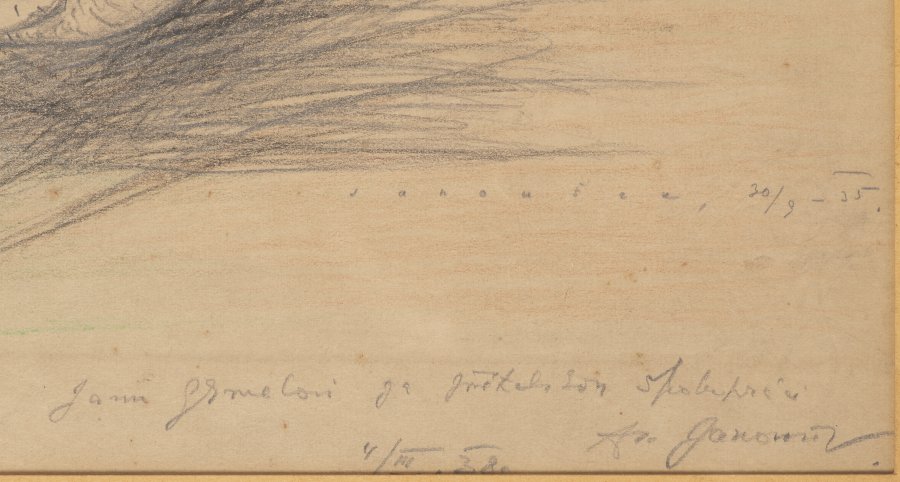 janoušek, 30/9 – 35.
Janu Grmelovi za přátelskou spolupráci
Fr. Janoušek
4/III. 38.